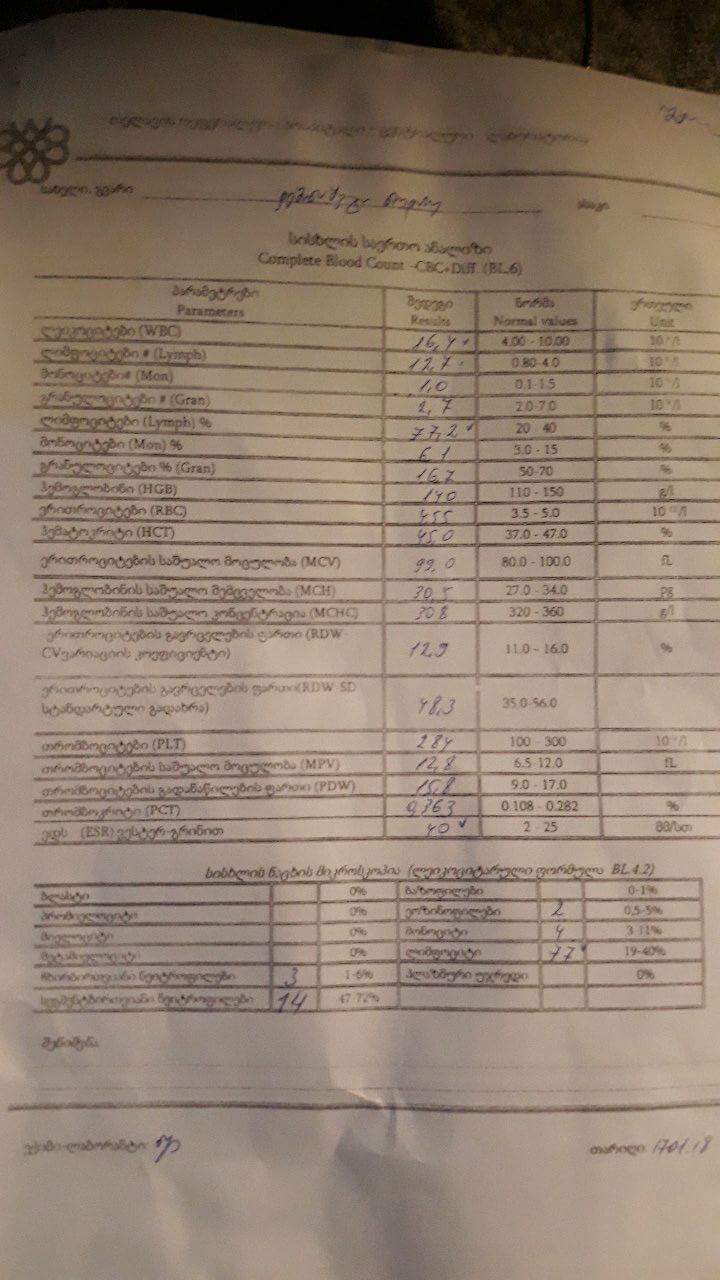 სახელი, გვარი
ასაკი
სისხლის საერთო ანალიზი
Complete Blood Count -CBC+Diff. (BL.6)
პარამეტრები შედეგი ნორმა ერთეული
Parameters Results Normal values Unit
ლეიკოციტები (WBC) 16,4 4.00 - 10.00
ლიმფოციტები # (Lymph) 12,7 0.80-4.0
მონოციტები# (Mon) 1,0 0.1-1.5
გრანულოციტები # (Gran) 2,7 2.0-7.0
ლიმფოციტები (Lymph) % 77,2 20 - 40 %
მონოციტები (Mon) % 6,1 3.0 - 15 %
გრანულოციტები % (Gran) 16,7 50-70 %
ჰემოგლობინი (HGB) 140 110 - 150 g/l
ერითროციტები (RBC) 455 3.5 - 5.0
ჰემატოკრიტი (HCT) 45,0 37.0 - 47.0 %
ერითროციტების საშუალო მოცულობა (MCV) 99,0 80.0 - 100.0 fL
ჰემოგლობინის საშუალო შემცველობა (MCH) 30,5 27.0 - 34.0 pg
ჰემოგლობინის საშუალო კონცენტრაცია (MCHC) 308 320 - 360 g/l
ერითროციტების გავრცელების ფართი (RDW-
CVვარიაციის კოეფიციენტი) 12,9 11.0 - 16.0 %
ერითროციტების გავრცელების ფართი(RDW-SD
სტანდარტული გადახრა) 48,3 35.0-56.0
თრომბოციტები (PLT) 284 100 - 300
თრომბოციტების საშუალო მოცულობა (MPV) 12,8 6.5-12.0 fL
თრომბოციტების გადანაწილების ფართი (PDW) 15,8 9.0 - 17.0
თრომბოკრიტი (PCT) 0,363 0.108 - 0.282 %
ედს (ESR) ვესტერ-გრინით 40 2 - 25 მმ/სთ
სისხლის ნაცხის მიკროსკოპია (ლეიკოციტარული ფორმულა BL.4.2)
ბლასტი 0% ბაზოფილები 0-1%
პრომიელოციტი 0% ეოზინოფილები 2 0,5-5%
მიელოციტი 0% მონოციტი 4 3-11%
მეტამიელოციტი 0% ლიმფოციტი 77 19-40%
ჩხირბირთვიანი ნეიტროფილები 3 1-6% პლაზმური უჯრედი 0%
სეგმენტბირთვიანი ნეიტროფილები 14 47-72%
შენიშვნა
ექიმი-ლაბორანტი
თარიღი. 17.01.18